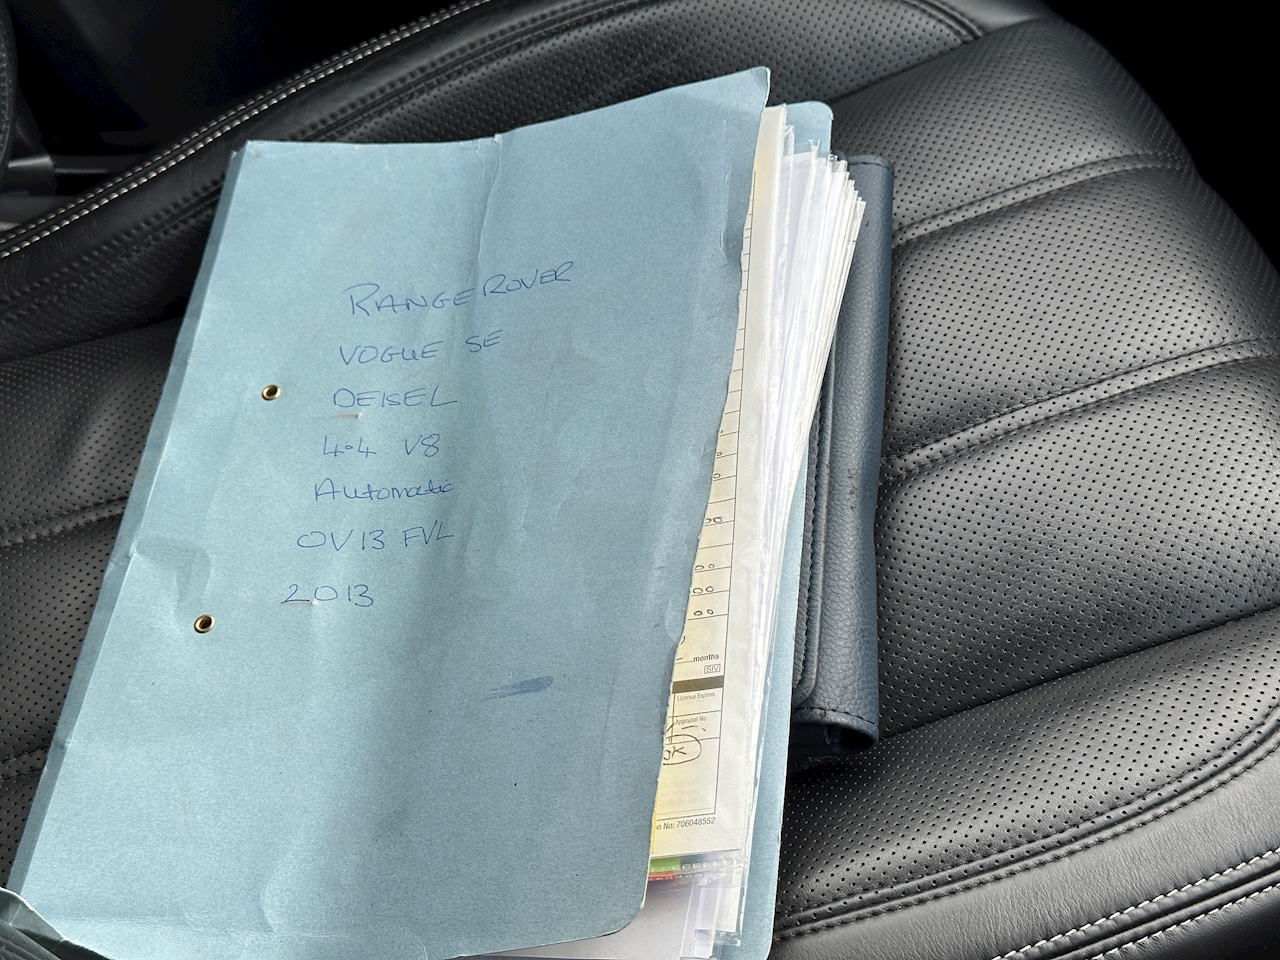 RANGE ROVER
VOGUE SE
DEISEL
4.4 V8
Automatic
OV13 FVL
2013
months
SIV
License Expires
Appraisal No.
OK
n No: 706048552